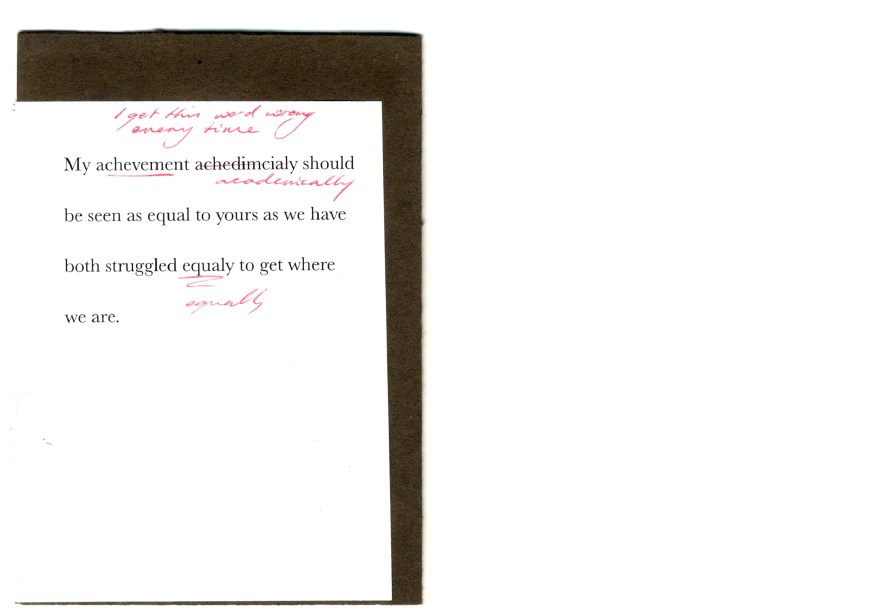 I get this word wrong
eveny time
My achevement achedimcialy should
academically
be seen as equal to yours as we have
both struggled equaly to get where
equally
we are.